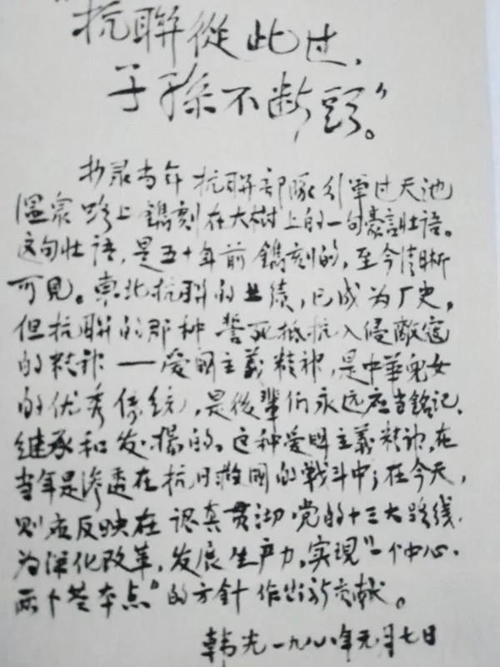 “抗聯從此过，
子孫不断頭”。
抄录当年抗联部隊引軍过天池
温泉路上鐫刻在大樹上的一句豪言壮語。
这句壮語，是五十年前鐫刻的，至今清晰
可见。東北抗联的业绩，已成为厂史，
但抗联的那种誓死抵抗入侵敵寇
的精神——爱国主義精神，是中華兒女
的优秀传统，是後輩们永远应当銘记、
继承和发揚的。这种爱国主義精神，在
当年是渗透在抗日救國的戰斗中；在今天，
则应反映在认真贯彻党的十三大路线，
为深化改革，发展生产力，实現“一个中心、
两个基本点”的方針作出新贡献。
韓光一九八八年元月七日